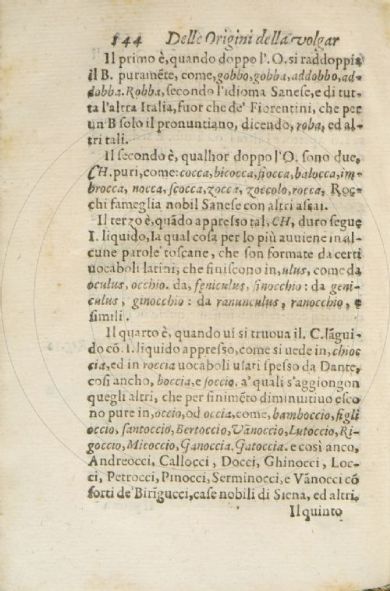 144 Delle Origini della volgar
Il primo è, quando doppo l'. O. si raddoppia
il B. puramẽte, come, gobbo, gobba, addobbo, ad-
dobba. Robba, secondo l'idioma Sanese, e di tut-
ta l'altra Italia, fuor che de' Fiorentini, che per
un B solo il pronuntiano, dicendo, roba, ed al-
tri tali.
Il secondo è, qualhor doppo l'O. sono due,
CH. puri, come: cocca, bicocca, fiocca, balocca, im-
brocca, nocca, scocca, zocca, zoccolo, rocca, Roc-
chi fameglia nobil Sanese con altri assai.
Il terzo è, quãdo appresso tal, CH, duro segue
I. liquido, la qual cosa per lo più auuiene in al-
cune parole toscane, che son formate da certi
uocaboli latini, che finiscono in, ulus, come da
oculus, occhio. da, feniculus, finocchio: da geni-
culus, ginocchio: da ranunculus, ranocchio, e
simili.
Il quarto è, quando ui si truoua il. C. lãgui-
do cõ. I. liquido appresso, come si uede in, chioc
cia, ed in roccia uocaboli usati spesso da Dante,
cosi ancho, boccia, e soccio. a' quali s'aggiongon
quegli altri, che per finimẽto diminutiuo esco
no pure in, occio, od occia, come, bamboccio, figli
occio, santoccio, Bertoccio, Vãnoccio, Lutoccio, Ri-
goccio, Micoccio, Ganoccia. Gatoccia. e così anco,
Andreocci, Callocci, Docci, Ghinocci, Loc-
ci, Petrocci, Pinocci, Serminocci, e Vãnocci cõ
sorti de' Birĩgucci, case nobili di Siena, ed altri.
Il quinto